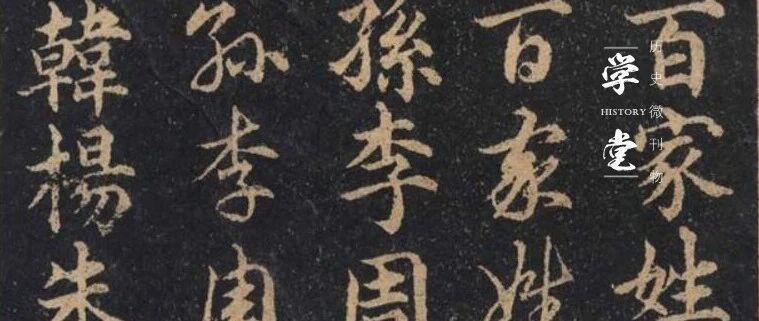 百家姓
百家姓
孫李周
孙李周
韓楊朱
学堂
HISTORY
历史微刊物